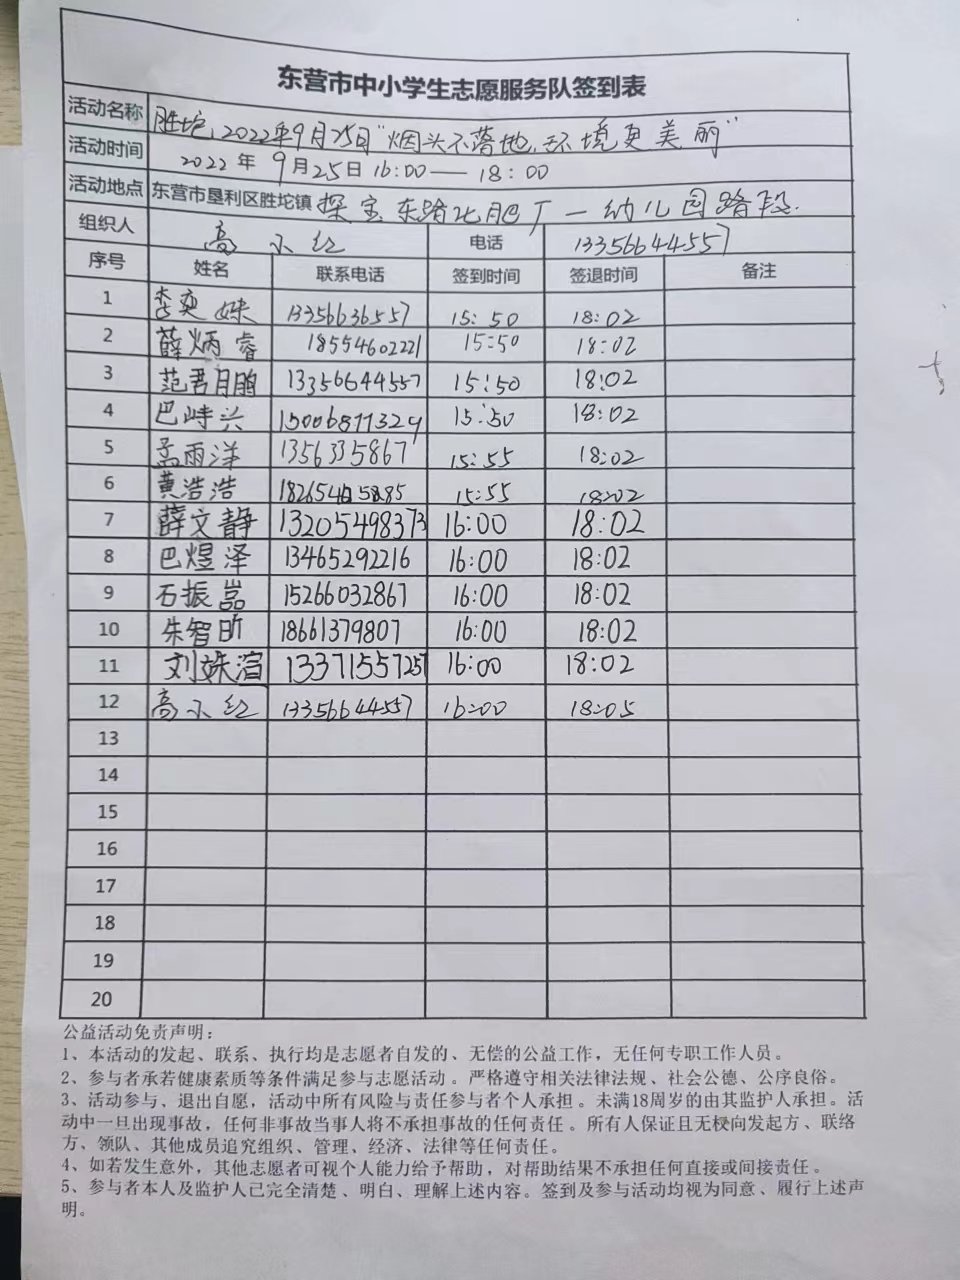 东营市中小学生志愿服务队签到表
活动名称 胜坨,2022年9月25日"烟头不落地,环境更美丽"
活动时间 2022年9月25日16:00——18:00
活动地点 东营市垦利区胜坨镇 探宝东路化肥厂一幼儿园路段.
组织人 高小红 电话 13356644557
序号 姓名 联系电话 签到时间 签退时间 备注
1 李奕姝 13356636557 15:50 18:02
2 薛炳睿 18554602221 15:50 18:02
3 范君月朋 13356644557 15:50 18:02
4 巴峙兴 15006811329 15:50 18:02
5 孟雨洋 1356335867 15:55 18:02
6 黄浩浩 15:55 18:02
7 薛文静 13205498373 16:00 18:02
8 巴煜泽 13465292216 16:00 18:02
9 石振嵩 15266032867 16:00 18:02
10 朱智昕 18661379807 16:00 18:02
11 刘姝渲 13371557257 16:00 18:02
12 高小红 13356644557 16:00 18:05
13
14
15
16
17
18
19
20
公益活动免责声明：
1、本活动的发起、联系、执行均是志愿者自发的、无偿的公益工作，无任何专职工作人员。
2、参与者承若健康素质等条件满足参与志愿活动。严格遵守相关法律法规、社会公德、公序良俗。
3、活动参与、退出自愿，活动中所有风险与责任参与者个人承担。未满18周岁的由其监护人承担。活
动中一旦出现事故，任何非事故当事人将不承担事故的任何责任。所有人保证且无权向发起方、联络
方、领队、其他成员追究组织、管理、经济、法律等任何责任。
4、如若发生意外，其他志愿者可视个人能力给予帮助，对帮助结果不承担任何直接或间接责任。
5、参与者本人及监护人已完全清楚、明白、理解上述内容。签到及参与活动均视为同意、履行上述声
明。